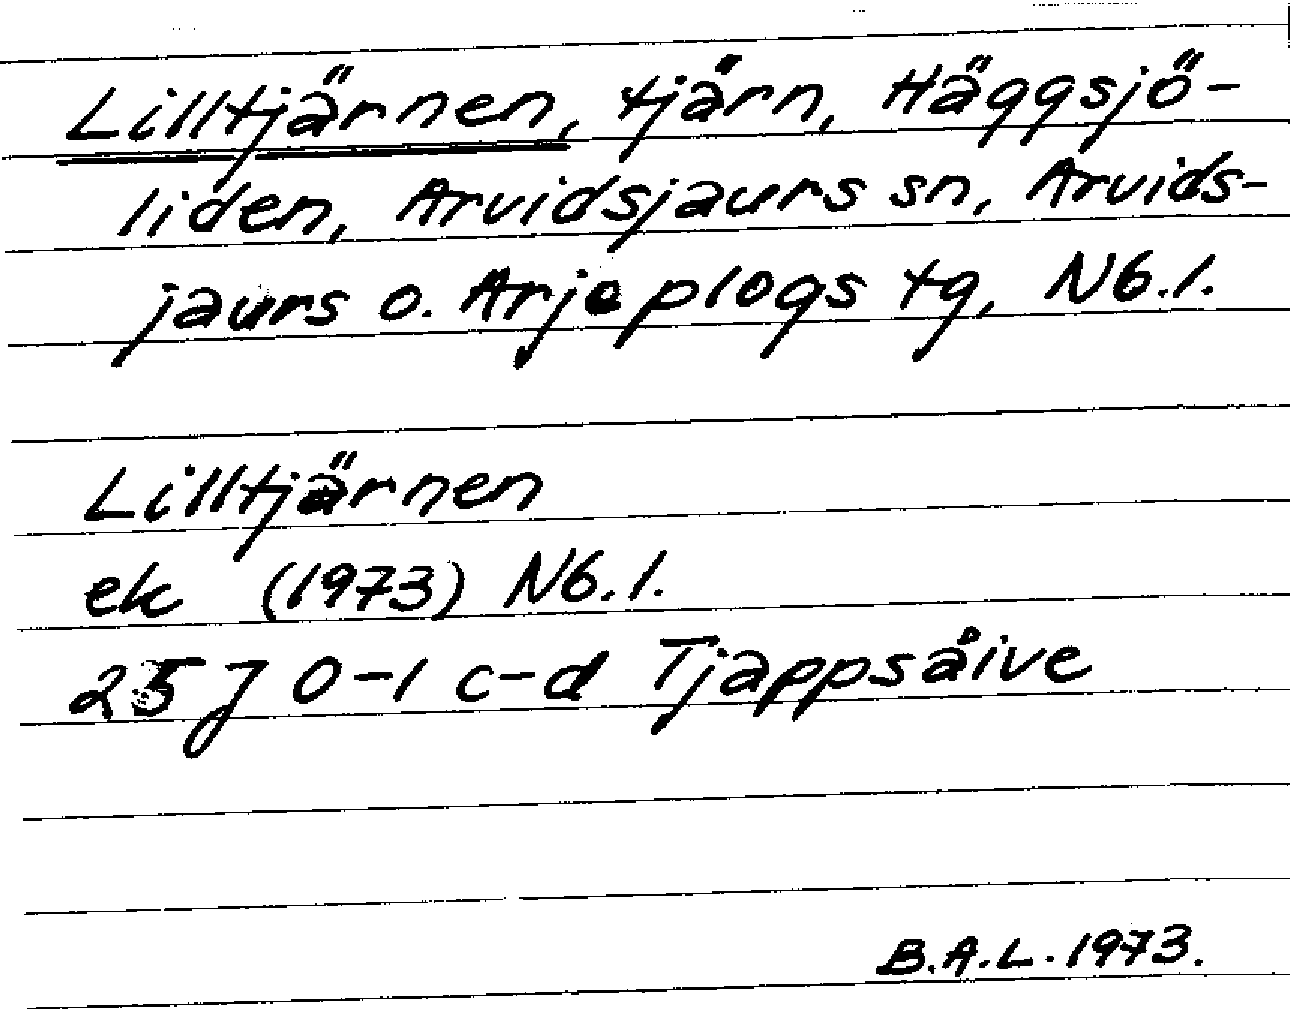 Lilltjärnen, tjärn, Häggsjö-
liden, Arvidsjaurs sn, Arvids-
jaurs o. Arjeplogs tg, Nb.l.
Lilltjärnen
ek (1973) Nb.l.
25 J 0-1 c-d Tjappsåive
B.A.L. 1973.